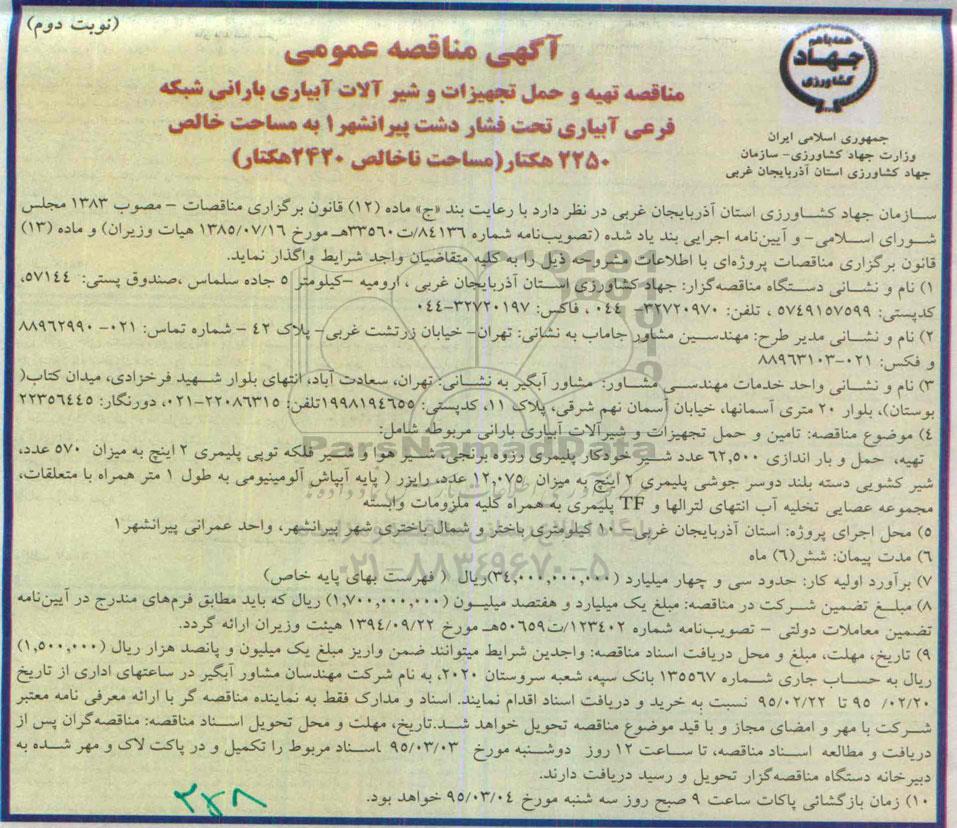 (نوبت دوم)
همه با هم
جهاد
کشاورزی
جمهوری اسلامی ایران
وزارت جهاد کشاورزی- سازمان
جهاد کشاورزی استان آذربایجان غربی
آگهی مناقصه عمومی
مناقصه تهیه و حمل تجهیزات و شیر آلات آبیاری بارانی شبکه
فرعی آبیاری تحت فشار دشت پیرانشهر۱ به مساحت خالص
۲۲۵۰ هکتار(مساحت ناخالص ۲۴۲۰هکتار)
سازمان جهاد کشاورزی استان آذربایجان غربی در نظر دارد با رعایت بند «ج» ماده (۱۲) قانون برگزاری مناقصات – مصوب ۱۳۸۳ مجلس
شورای اسلامی- و آیین‌نامه اجرایی بند یاد شده (تصویب‌نامه شماره ۸۴۱۳۶/ت۳۳۵۶۰هـ مورخ ۱۳۸۵/۰۷/۱۶ هیات وزیران) و ماده (۱۳)
قانون برگزاری مناقصات پروژه‌ای با اطلاعات مشروحه ذیل را به کلیه متقاضیان واجد شرایط واگذار نماید.
۱) نام و نشانی دستگاه مناقصه‌گزار: جهاد کشاورزی استان آذربایجان غربی ، ارومیه –کیلومتر ۵ جاده سلماس ،صندوق پستی: ۵۷۱۴۴،
کدپستی: ۵۷۴۹۱۵۷۵۹۹ ، تلفن: ۳۲۷۲۰۹۷۰- ۰۴۴ ، فاکس: ۳۲۷۲۰۱۹۷-۰۴۴
۲) نام و نشانی مدیر طرح: مهندسین مشاور جاماب به نشانی: تهران- خیابان زرتشت غربی- پلاک ۴۲ – شماره تماس: ۰۲۱- ۸۸۹۶۲۹۹۰
و فکس: ۰۲۱-۸۸۹۶۳۱۰۳
۳) نام و نشانی واحد خدمات مهندسی مشاور: مشاور آبگیر به نشانی: تهران، سعادت آباد، انتهای بلوار شهید فرخزادی، میدان کتاب(
بوستان)، بلوار ۲۰ متری آسمانها، خیابان آسمان نهم شرقی، پلاک ۱۱، کدپستی: ۱۹۹۸۱۹۴۶۵۵تلفن: ۲۲۰۸۶۳۱۵-۰۲۱، دورنگار: ۲۲۳۵۶۴۴۵
۴) موضوع مناقصه: تامین و حمل تجهیزات و شیرآلات آبیاری بارانی مربوطه شامل:
تهیه، حمل و بار اندازی ۶۲,۵۰۰ عدد شیر خودکار پلیمری رزوه برنجی، شیر هوا و شیر فلکه توپی پلیمری ۲ اینچ به میزان ۵۷۰ عدد،
شیر کشویی دسته بلند دوسر جوشی پلیمری ۲ اینچ به میزان ۱۲,۰۷۵ عدد، رایزر ( پایه آبپاش آلومینیومی به طول ۱ متر همراه با متعلقات،
مجموعه عصایی تخلیه آب انتهای لترالها و TF پلیمری به همراه کلیه ملزومات وابسته
۵) محل اجرای پروژه: استان آذربایجان غربی – ۱۰ کیلومتری باختر و شمال باختری شهر پیرانشهر، واحد عمرانی پیرانشهر۱
۶) مدت پیمان: شش(۶) ماه
۷) برآورد اولیه کار: حدود سی و چهار میلیارد (۳۴,۰۰۰,۰۰۰,۰۰۰)ریال ( فهرست بهای پایه خاص)
۸) مبلغ تضمین شرکت در مناقصه: مبلغ یک میلیارد و هفتصد میلیون (۱,۷۰۰,۰۰۰,۰۰۰) ریال که باید مطابق فرم‌های مندرج در آیین‌نامه
تضمین معاملات دولتی – تصویب‌نامه شماره ۱۲۳۴۰۲/ت۵۰۶۵۹هـ مورخ ۱۳۹۴/۰۹/۲۲ هیئت وزیران ارائه گردد.
۹) تاریخ، مهلت، مبلغ و محل دریافت اسناد مناقصه: واجدین شرایط میتوانند ضمن واریز مبلغ یک میلیون و پانصد هزار ریال (۱,۵۰۰,۰۰۰)
ریال به حساب جاری شماره ۱۳۵۵۶۷ بانک سپه، شعبه سروستان ۲۰۲۰، به نام شرکت مهندسان مشاور آبگیر در ساعتهای اداری از تاریخ
۹۵ /۰۲/۲۰ تا ۹۵/۰۲/۲۲ نسبت به خرید و دریافت اسناد اقدام نمایند. اسناد و مدارک فقط به نماینده مناقصه گر با ارائه معرفی نامه معتبر
شرکت با مهر و امضای مجاز و با قید موضوع مناقصه تحویل خواهد شد.تاریخ، مهلت و محل تحویل اسناد مناقصه: مناقصه‌گران پس از
دریافت و مطالعه اسناد مناقصه، تا ساعت ۱۲ روز دوشنبه مورخ ۹۵/۰۳/۰۳ اسناد مربوط را تکمیل و در پاکت لاک و مهر شده به
دبیرخانه دستگاه مناقصه‌گزار تحویل و رسید دریافت دارند.
۱۰) زمان بازگشائی پاکات ساعت ۹ صبح روز سه شنبه مورخ ۹۵/۰۳/۰۴ خواهد بود.
ParsNamadData
۰۲۱-۸۸۳۴۹۶۷۰-۵